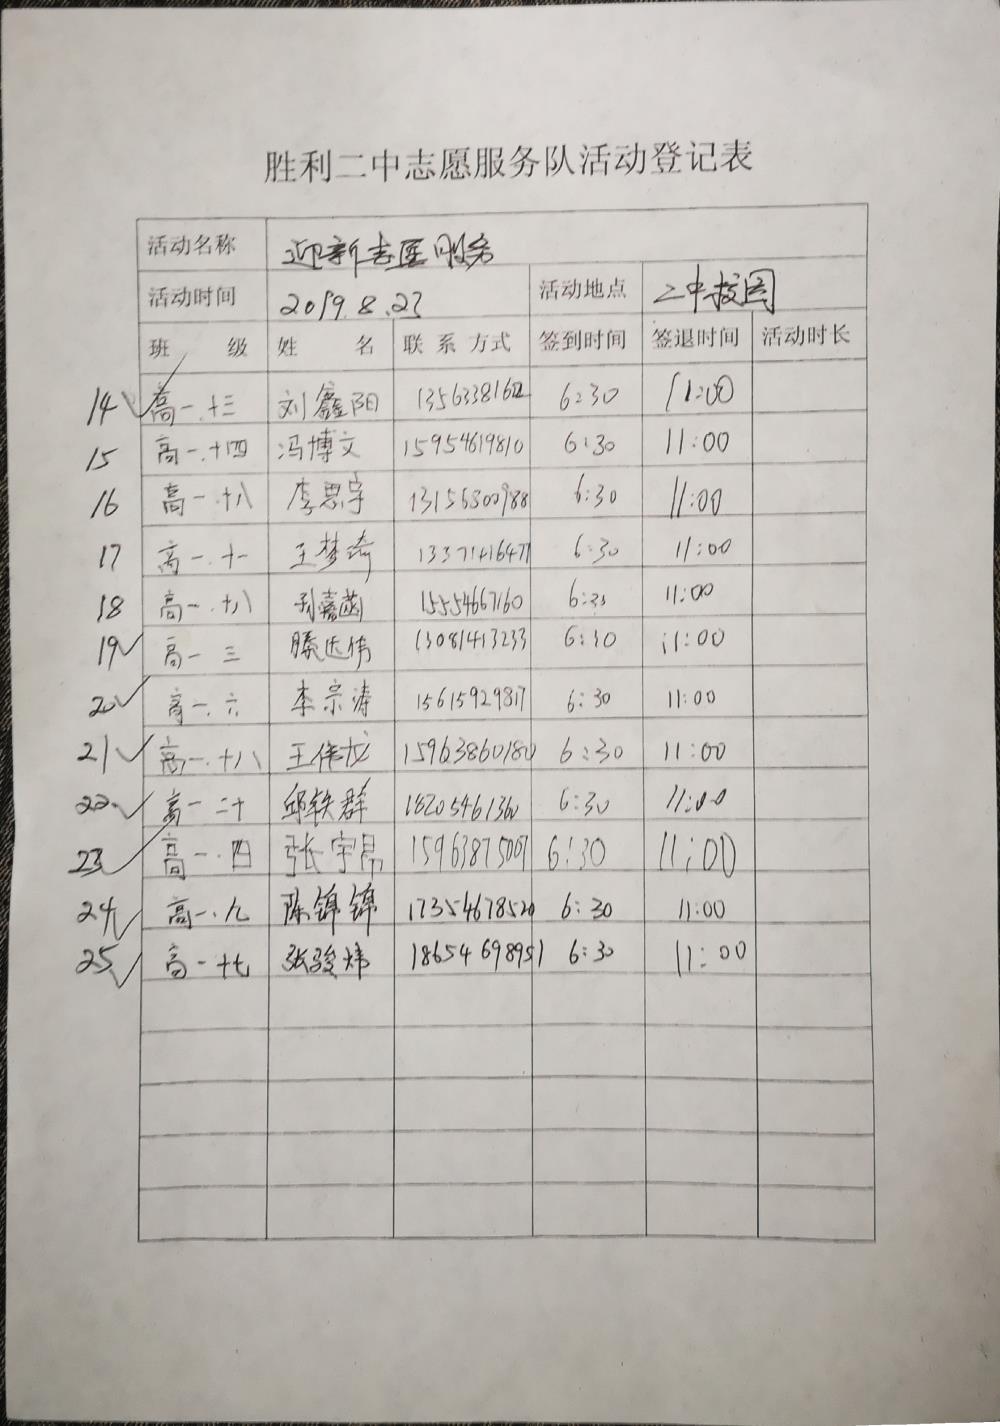 胜利二中志愿服务队活动登记表
活动名称 迎新志愿服务
活动时间 2019.8.23 活动地点 二中校园
班 级 姓 名 联系方式 签到时间 签退时间 活动时长
14 高一.十三 刘鑫阳 6:30 11:00
15 高一.十四 冯博文 15954619810 6:30 11:00
16 高一.十八 李思宇 13156800988 6:30 11:00
17 高一.十一 王梦琦 13371416471 6:30 11:00
18 高一.十八 孙嘉菡 15554667160 6:30 11:00
19 高一 三 滕达伟 13081413233 6:30 11:00
20 高一.六 李宗涛 15615929817 6:30 11:00
21 高一.十八 王伟龙 15963860180 6:30 11:00
22 高一 二十 邱铁群 18205461360 6:30 11:00
23 高一.四 张宇昂 15963875007 6:30 11:00
24 高一.九 陈锦锦 17354678520 6:30 11:00
25 高一 十七 张骏炜 18654698951 6:30 11:00